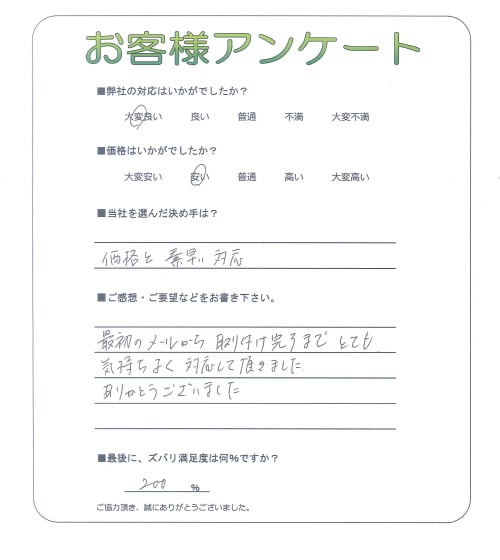 お客様アンケート
■弊社の対応はいかがでしたか？
大変良い 良い 普通 不満 大変不満
■価格はいかがでしたか？
大変安い 安い 普通 高い 大変高い
■当社を選んだ決め手は？
価格と 素早い 対応
■ご感想・ご要望などをお書き下さい。
最初のメールから 取り付け完了まで とても
気持ちよく 対応して頂きました
ありがとうございました
■最後に、ズバリ満足度は何％ですか？
200 ％
ご協力頂き、誠にありがとうございました。